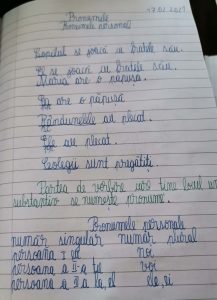 Pronumele
Pronumele personal
Copilul se joacă cu fratele său.
El se joacă cu fratele său.
Maria are o păpușă.
Ea are o păpușă
Rândunelele au plecat.
Ele au plecat.
Colegii sunt pregătiți.
Partea de vorbire care ține locul unui
substantiv se numește pronume.
Pronumele personale
număr singular număr plural
persoana I eu noi
persoana a II a tu voi
persoana a III a el, ea ele, ei